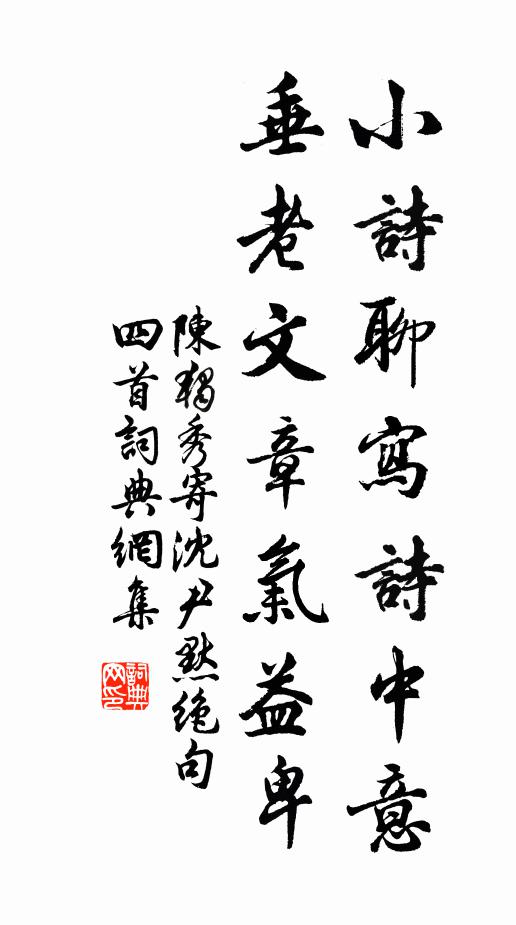 小詩聊寫詩中意
垂老文章氣益卑
陳獨秀寄沈尹默絶句
四首詞典網集
詞典网印